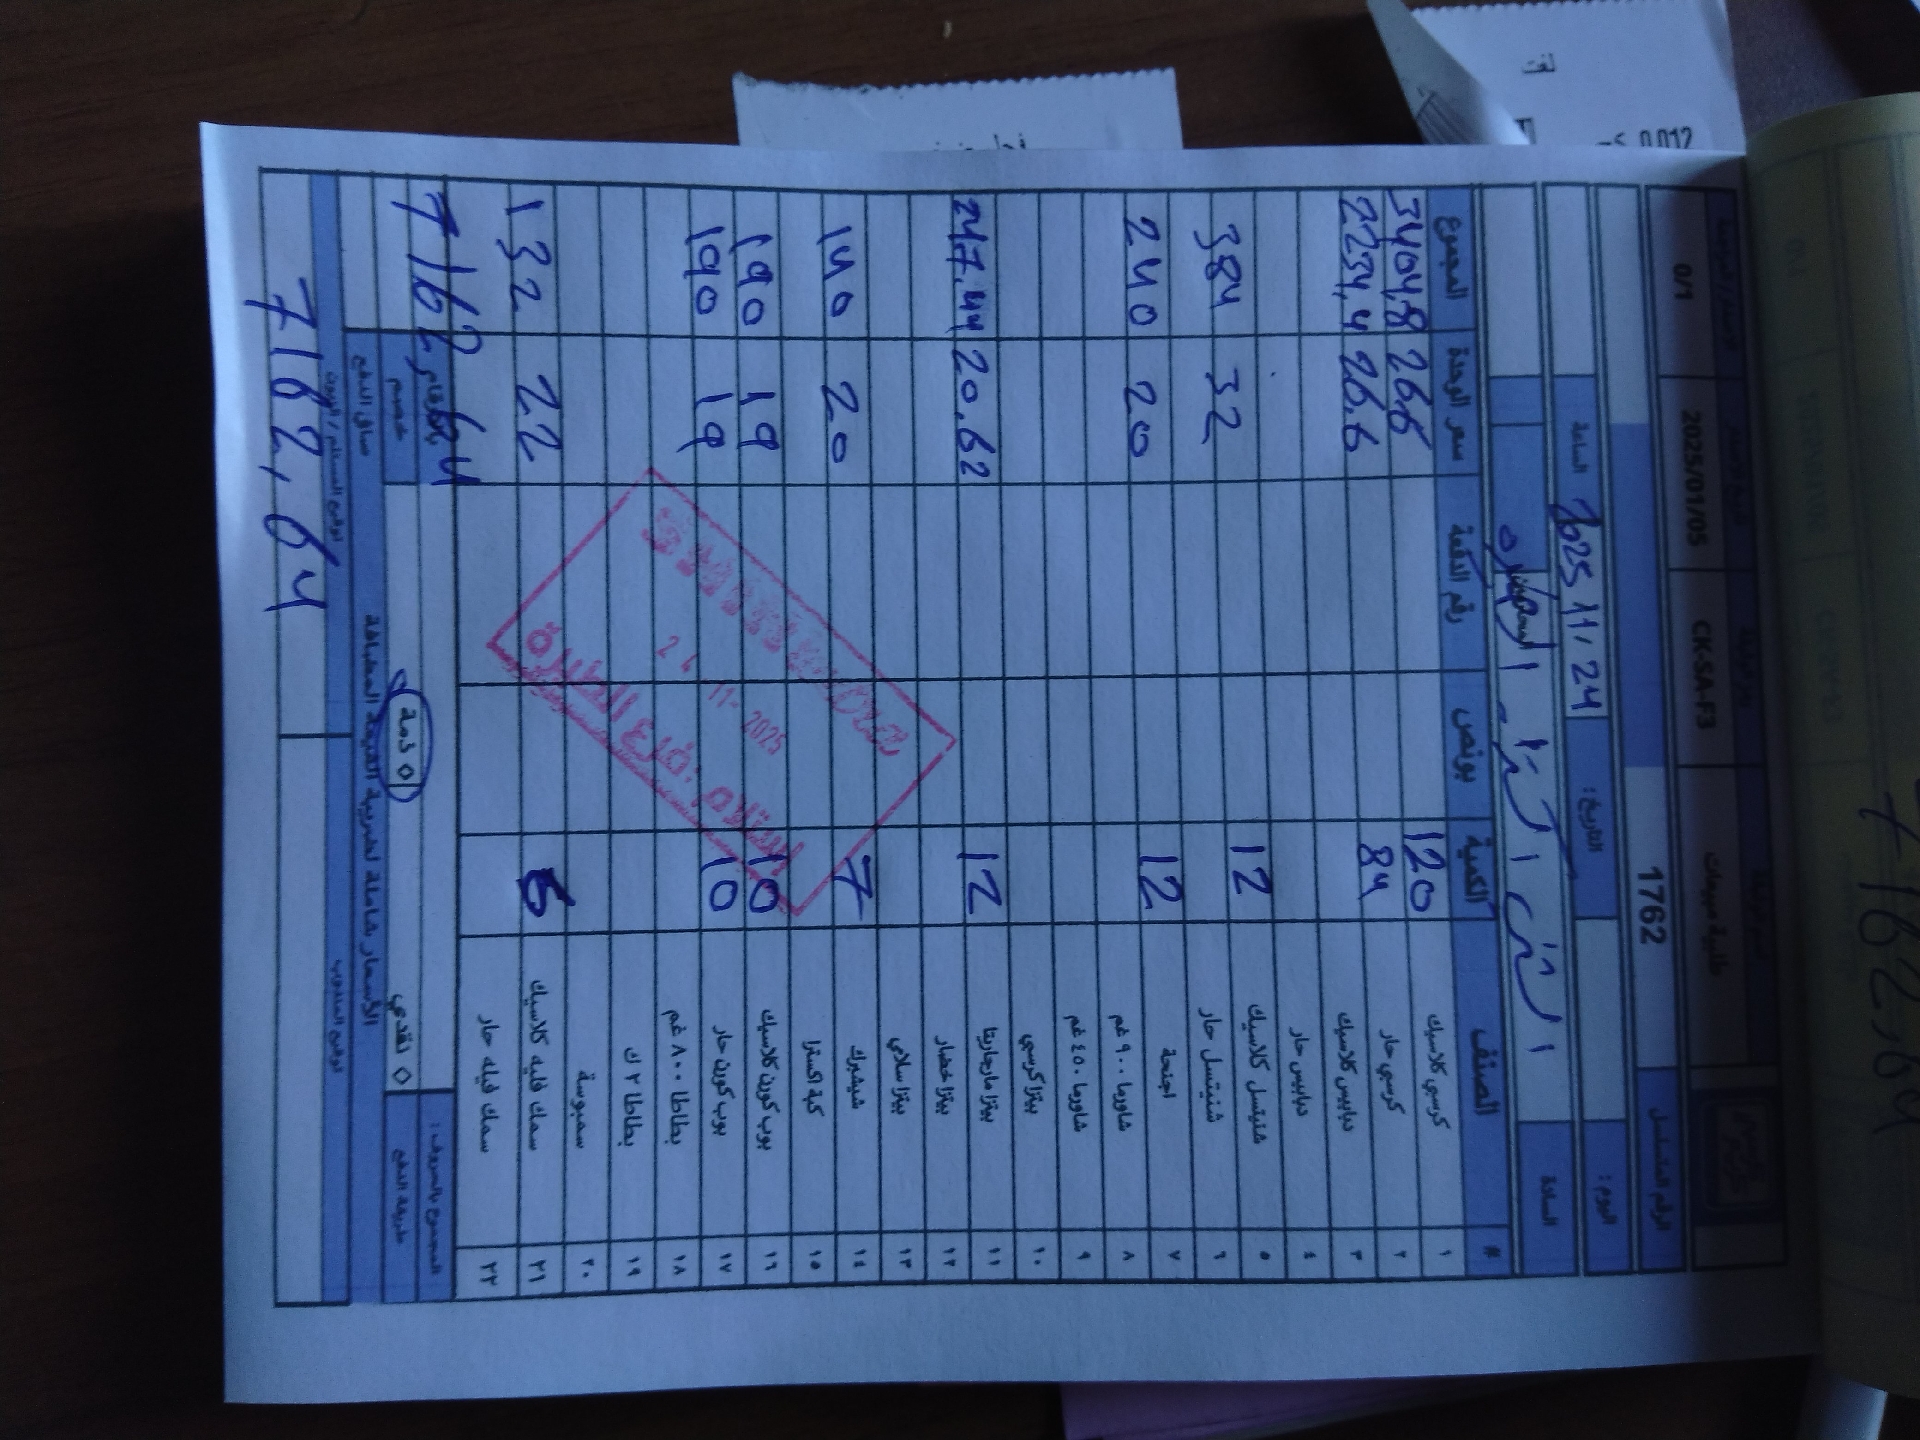 طلبية مبيعات
0/1 2025/01/05 CK-SA-F3
الرقم المتسلسل 1762
اليوم: التاريخ: 2025 11, 24 الساعة
السادة
# الصنف الكمية بونص رقم الدفعة سعر الوحدة المجموع
١ كرسبي كلاسيك 120 3404,8
٢ كرسبي حار 84 26.6 2234,4
٣ دبابيس كلاسيك
٤ دبابيس حار
٥ شنيتسل كلاسيك 12 32 384
٦ شنيتسل حار
٧ اجنحة 12 20 240
٨ شاورما ٩٠٠ غم
٩ شاورما ٤٥٠ غم
١٠ بيتزا كرسبي
١١ بيتزا مارجاريتا 12 20.62 247,44
١٢ بيتزا خضار
١٣ بيتزا سلامي
١٤ شيشبرك 7 20 140
١٥ كبة اكسترا
١٦ بوب كورن كلاسيك 10 19 190
١٧ بوب كورن حار 10 19 190
١٨ بطاطا ٨٠٠ غم
١٩ بطاطا ٢ ك
٢٠ سمبوسة
٢١ سمك فليه كلاسيك 6 22 132
٢٢ سمك فيله حار
المجموع بالحروف: بالارقام 7162,64
طريقة الدفع ◊ نقدي ◊ ذمة خصم
الأسعار شاملة لضريبة القيمة المضافة صافي الدفع
توقيع المندوب توقيع المستلم / الزبون
7162,64
11- 2025
استلام - فرع الطيرة
7162,64
لفت
0.012